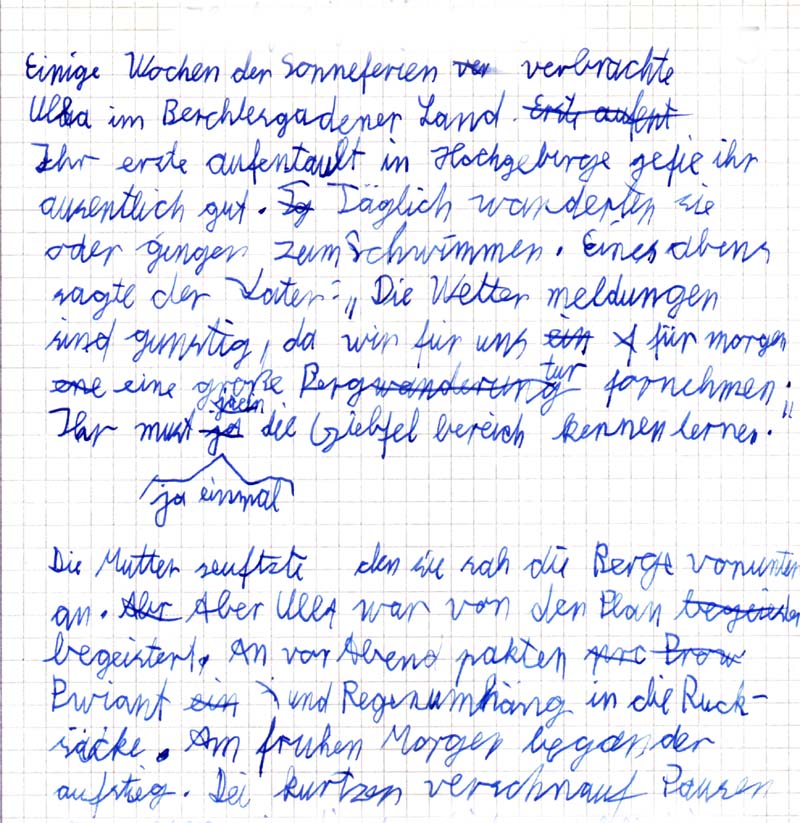 Einige Wochen der Sonneferien ver verbrachte
Ulla im Berchtergadener Land. Erste aufent
Ihr erste aufentault in Hochgebirge gefie ihr
ausentlich gut. Tg Täglich wanderten sie
oder gingen zum Schwimmen. Eines abens
sagte der Vater: „Die Wetter meldungen
sind gunstig, da wir für uns ein für morgen
one eine große Bergwanderung tur fornehmen.
Ihr must ja die Giebfel bereich kennen lernen."
ja einmal
Die Mutter seuftzte den sie sah die Berge vonunten
an. Abr Aber Ulla war von den Plan begeister
begeistert. An vor Abend pakten Prow
Prviant ein und Regenumhäng in die Ruck-
säcke. Am fruhen Morgen began der
aufstieg. Bei kurtzen verschnauf Pausen